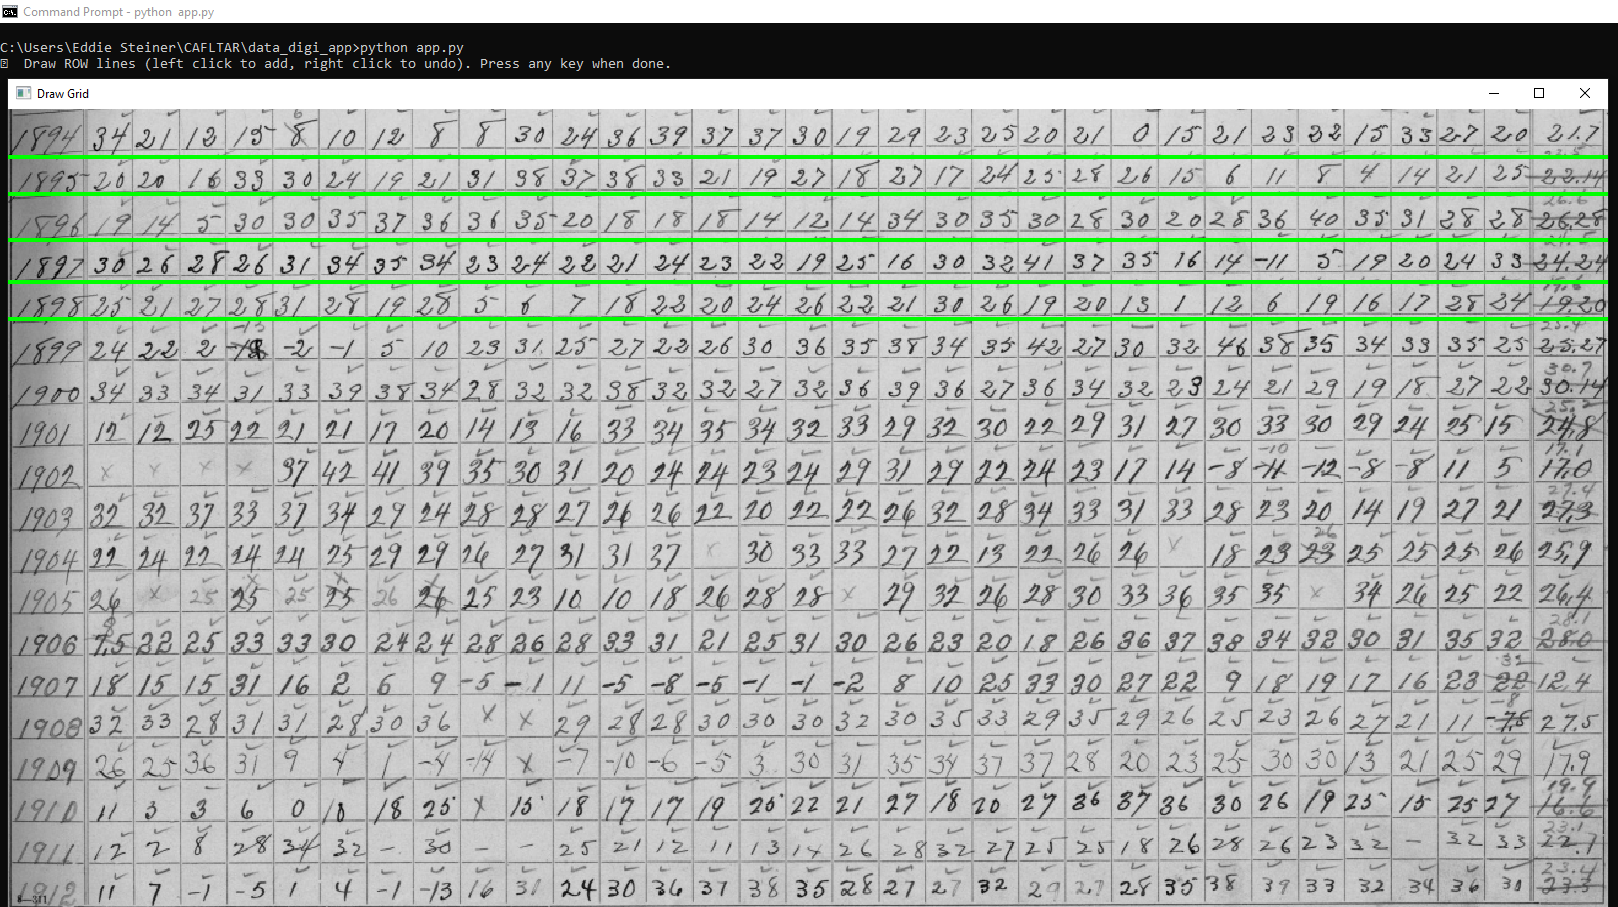 Command Prompt - python app.py
C:\Users\Eddie Steiner\CAFLTAR\data_digi_app>python app.py
Draw ROW lines (left click to add, right click to undo). Press any key when done.
Draw Grid
1894 34 21 12 15 8 10 12 8 8 30 24 36 39 37 37 30 19 29 23 25 20 21 0 15 21 23 22 15 33 27 20 21.7
1895 20 20 16 33 30 24 19 21 31 38 37 38 33 21 19 27 18 27 17 24 25 28 26 15 6 11 8 4 14 21 25 22.14
26.6
1896 19 14 5 30 30 35 37 36 36 35 20 18 18 18 14 12 14 34 30 35 30 28 30 20 28 36 40 35 31 28 28 26.28
1897 30 26 28 26 31 34 35 34 23 24 22 21 24 23 22 19 25 16 30 32 41 37 35 16 14 -11 5 19 20 24 33 24.24
1898 25 21 27 28 31 28 19 28 5 6 7 18 22 20 24 26 22 21 30 26 19 20 13 1 12 6 19 16 17 28 24 19.20
-13 25.4
1899 24 22 2 -2 -1 5 10 23 31 25 27 22 26 30 36 35 38 34 35 42 27 30 32 46 38 35 34 33 35 25 25.27
30.7
1900 34 33 34 31 33 39 38 34 28 32 32 38 32 32 27 32 36 39 36 27 36 34 32 23 24 21 29 19 18 27 22 30.14
1901 12 12 25 22 21 21 17 20 14 13 16 33 34 35 34 32 33 29 32 30 22 29 31 27 30 33 30 29 24 25 15 24.8
-10 17.1
1902 x x x x 37 42 41 39 35 30 31 20 24 24 23 24 29 31 29 22 24 23 17 14 -8 -11 -12 -8 -8 11 5 17.0
27.4
1903 32 32 37 33 37 34 29 24 28 28 27 26 26 22 20 22 22 26 32 28 34 33 31 33 28 23 20 14 19 27 21 27.3
26
1904 22 24 22 24 24 25 29 29 26 27 31 31 37 x 30 33 33 27 22 13 22 26 26 x 18 23 23 25 25 25 26 25.9
1905 26 x 25 25 25 25 26 26 25 23 10 10 18 26 28 28 x 29 32 26 28 30 33 36 35 35 x 34 26 25 22 26.4
28.1
1906 22 25 33 33 30 24 24 28 26 28 33 31 21 25 31 30 26 23 20 18 26 36 37 38 34 32 30 31 35 32 28.0
32
1907 18 15 15 31 16 2 6 9 -5 -1 11 -5 -8 -5 -1 -1 -2 8 10 25 33 30 27 22 9 18 19 17 16 23 22 12.4
-8
1908 32 33 28 31 31 28 30 36 x x 29 28 28 30 30 30 32 30 35 33 29 35 29 26 25 23 26 27 21 11 27.5
1909 26 25 36 31 9 4 1 -4 -14 x -7 -10 -6 -5 3 30 31 35 34 37 37 28 20 23 25 30 30 13 21 25 29 17.9
19.9
1910 11 3 3 6 0 10 18 25 x 15 18 17 17 19 25 22 21 27 18 20 27 36 37 36 30 26 19 25 15 25 27 16.6
23.1
1911 12 2 8 28 34 32 - 30 - - 25 21 12 11 13 14 26 28 32 27 25 25 18 26 28 26 23 32 - 32 33 22.7
23.4
1912 11 7 -1 -5 1 4 -1 -13 16 31 24 30 36 37 38 35 28 27 27 32 29 27 28 35 38 39 33 32 34 36 30 23.5